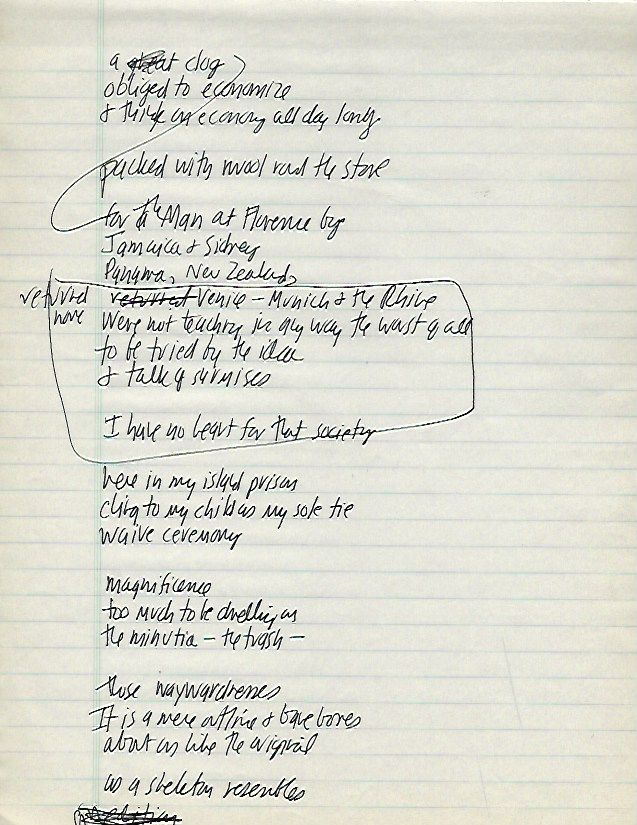 a great clog
obliged to economize
& think on economy all day long
packed with wool read the store
for the Man at Florence by
Jamaica & Sidney
Panama, New Zealand,
returned home
returned Venice – Munich & the Rhine
were not teaching in any way the worst of all
to be tried by the idea
& talk of surmises
I have no heart for that society
here in my island prison
cling to my child as my sole tie
waive ceremony
magnificence
too much to be dwelling on
the minutia – the trash –
those waywardnesses
It is a mere outline & bare bones
about as like the original
as a skeleton resembles